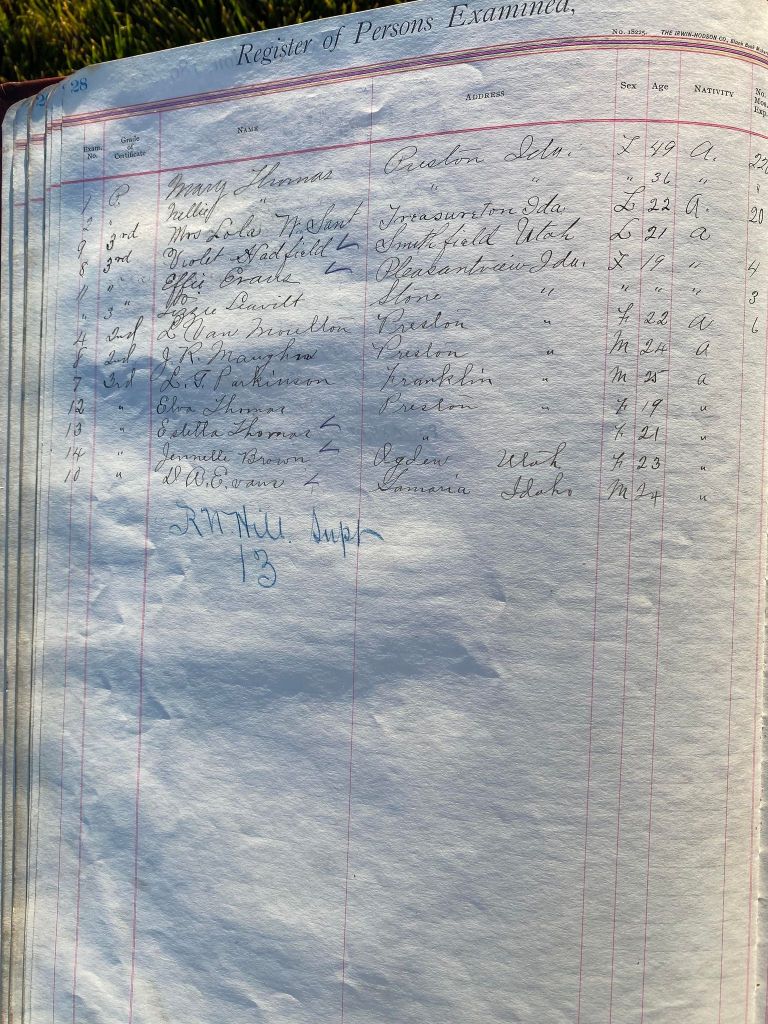 28
Register of Persons Examined,
No. 18225. THE IRWIN-HODSON CO.,
Exam. No. Grade of Certificate NAME ADDRESS SEX AGE NATIVITY No. Mos. Exp.
1 P. Mary Thomas Preston Ida. F 49 A.
2 " Nellie " " " " 36 "
9 3rd Mrs Lola W. Sant Treasureton Ida F 22 A. 20
8 3rd Violet Hadfield ✓ Smithfield Utah F 21 a
11 " Effie Evans ✓ Pleasantview Ida. F 19 " 4
" 3 " Lizzie Leavitt Stone " " " " 3
4 2nd L Van Moulton Preston " F 22 a 6
8 2nd J. R. Maughn Preston " M 24 a
7 3rd L. T. Parkinson Franklin " M 25 a
12 " Elva Thomas Preston " F 19 "
13 " Estella Thomas ✓ " F 21 "
14 " Jennette Brown ✓ Ogden Utah F 23 "
10 " D B. Evans ✓ Samaria Idaho M 24 "
R W Hill. Supt
13